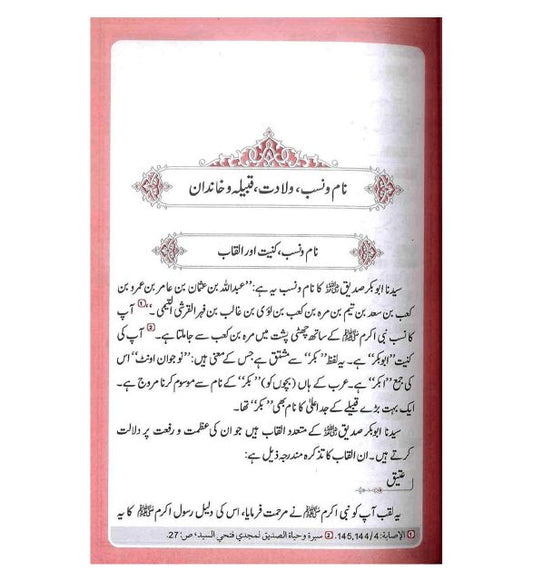 نام و نسب، ولادت، قبیلہ و خاندان
نام و نسب، کنیت اور القاب
سیدنا ابوبکر صدیق رضی اللہ عنہ کا نام و نسب یہ ہے: ’’عبداللہ بن عثمان بن عامر بن عمرو بن
کعب بن سعد بن تیم بن مرہ بن کعب بن لؤی بن غالب بن فہر القرشی التیمی۔‘‘ 1 آپ
کا نسب نبی اکرم ﷺ کے ساتھ چھٹی پشت میں مرہ بن کعب سے جا ملتا ہے۔ 2 آپ کی
کنیت ’’ابوبکر‘‘ ہے۔ یہ لفظ ’’بکر‘‘ سے مشتق ہے جس کے معنی ہیں: ’’نوجوان اونٹ‘‘ اس
کی جمع ’’ابکر‘‘ ہے۔ عرب کے ہاں (بچوں کو) ’’بکر‘‘ کے نام سے موسوم کرنا مروج ہے۔
ایک بہت بڑے قبیلے کے جد اعلیٰ کا نام بھی ’’بکر‘‘ تھا۔
سیدنا ابوبکر صدیق رضی اللہ عنہ کے متعدد القاب ہیں جو ان کی عظمت و رفعت پر دلالت
کرتے ہیں۔ ان القاب کا تذکرہ مندرجہ ذیل ہے:
عتیق
یہ لقب آپ کو نبی اکرم ﷺ نے مرحمت فرمایا، اس کی دلیل رسول اکرم ﷺ کا یہ
1 الإصابة: 4/145,144. 2 سيرة وحياة الصديق لمجدي فتحي السيد، ص: 27.